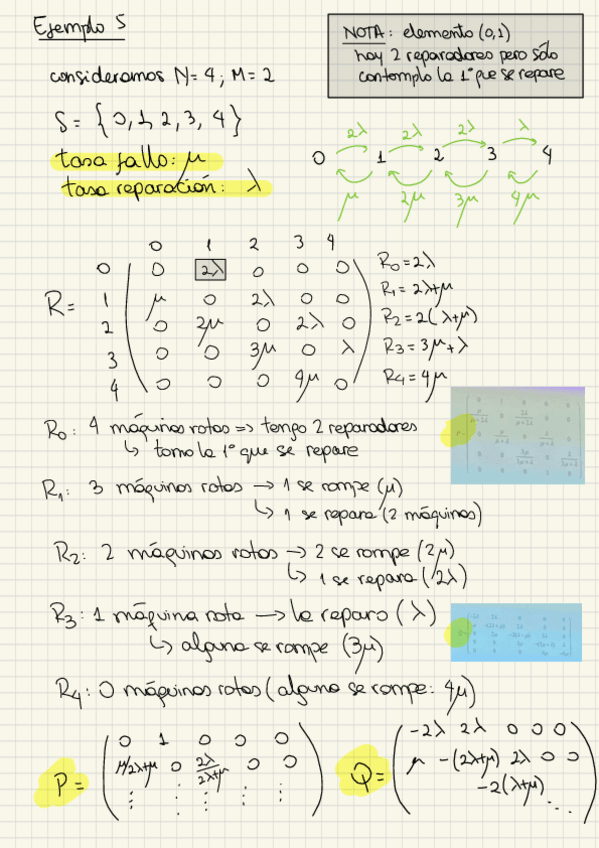 Ejemplo 5
NOTA: elemento (0,1)
hay 2 reparadores pero sólo
contemplo la 1ª que se repare
consideramos N=4; M=2
S= {0,1,2,3,4}
tasa fallo: μ
tasa reparación: λ
2λ 2λ 2λ λ
0 1 2 3 4
μ 2μ 3μ 4μ
0 1 2 3 4
0 0 2λ 0 0 0
R= 1 μ 0 2λ 0 0
2 0 2μ 0 2λ 0
3 0 0 3μ 0 λ
4 0 0 0 4μ 0
R0=2λ
R1=2λ+μ
R2=2(λ+μ)
R3=3μ+λ
R4=4μ
R0: 4 máquinas rotas => tengo 2 reparadores
↳ tomo la 1ª que se repare
R1: 3 máquinas rotas → 1 se rompe (μ)
↳ 1 se repara (2 máquinas)
R2: 2 máquinas rotas → 2 se rompe (2μ)
↳ 1 se repara (2λ)
R3: 1 máquina rota → la reparo (λ)
↳ alguna se rompe (3μ)
R4: 0 máquinas rotas (alguna se rompe: 4μ)
P= 0 1 0 0 0
μ/2λ+μ 0 2λ/2λ+μ 0 0
⋮ ⋮ ⋮ ⋮ ⋮
Q= -2λ 2λ 0 0 0
μ -(2λ+μ) 2λ 0 0
-2(λ+μ)
⋱